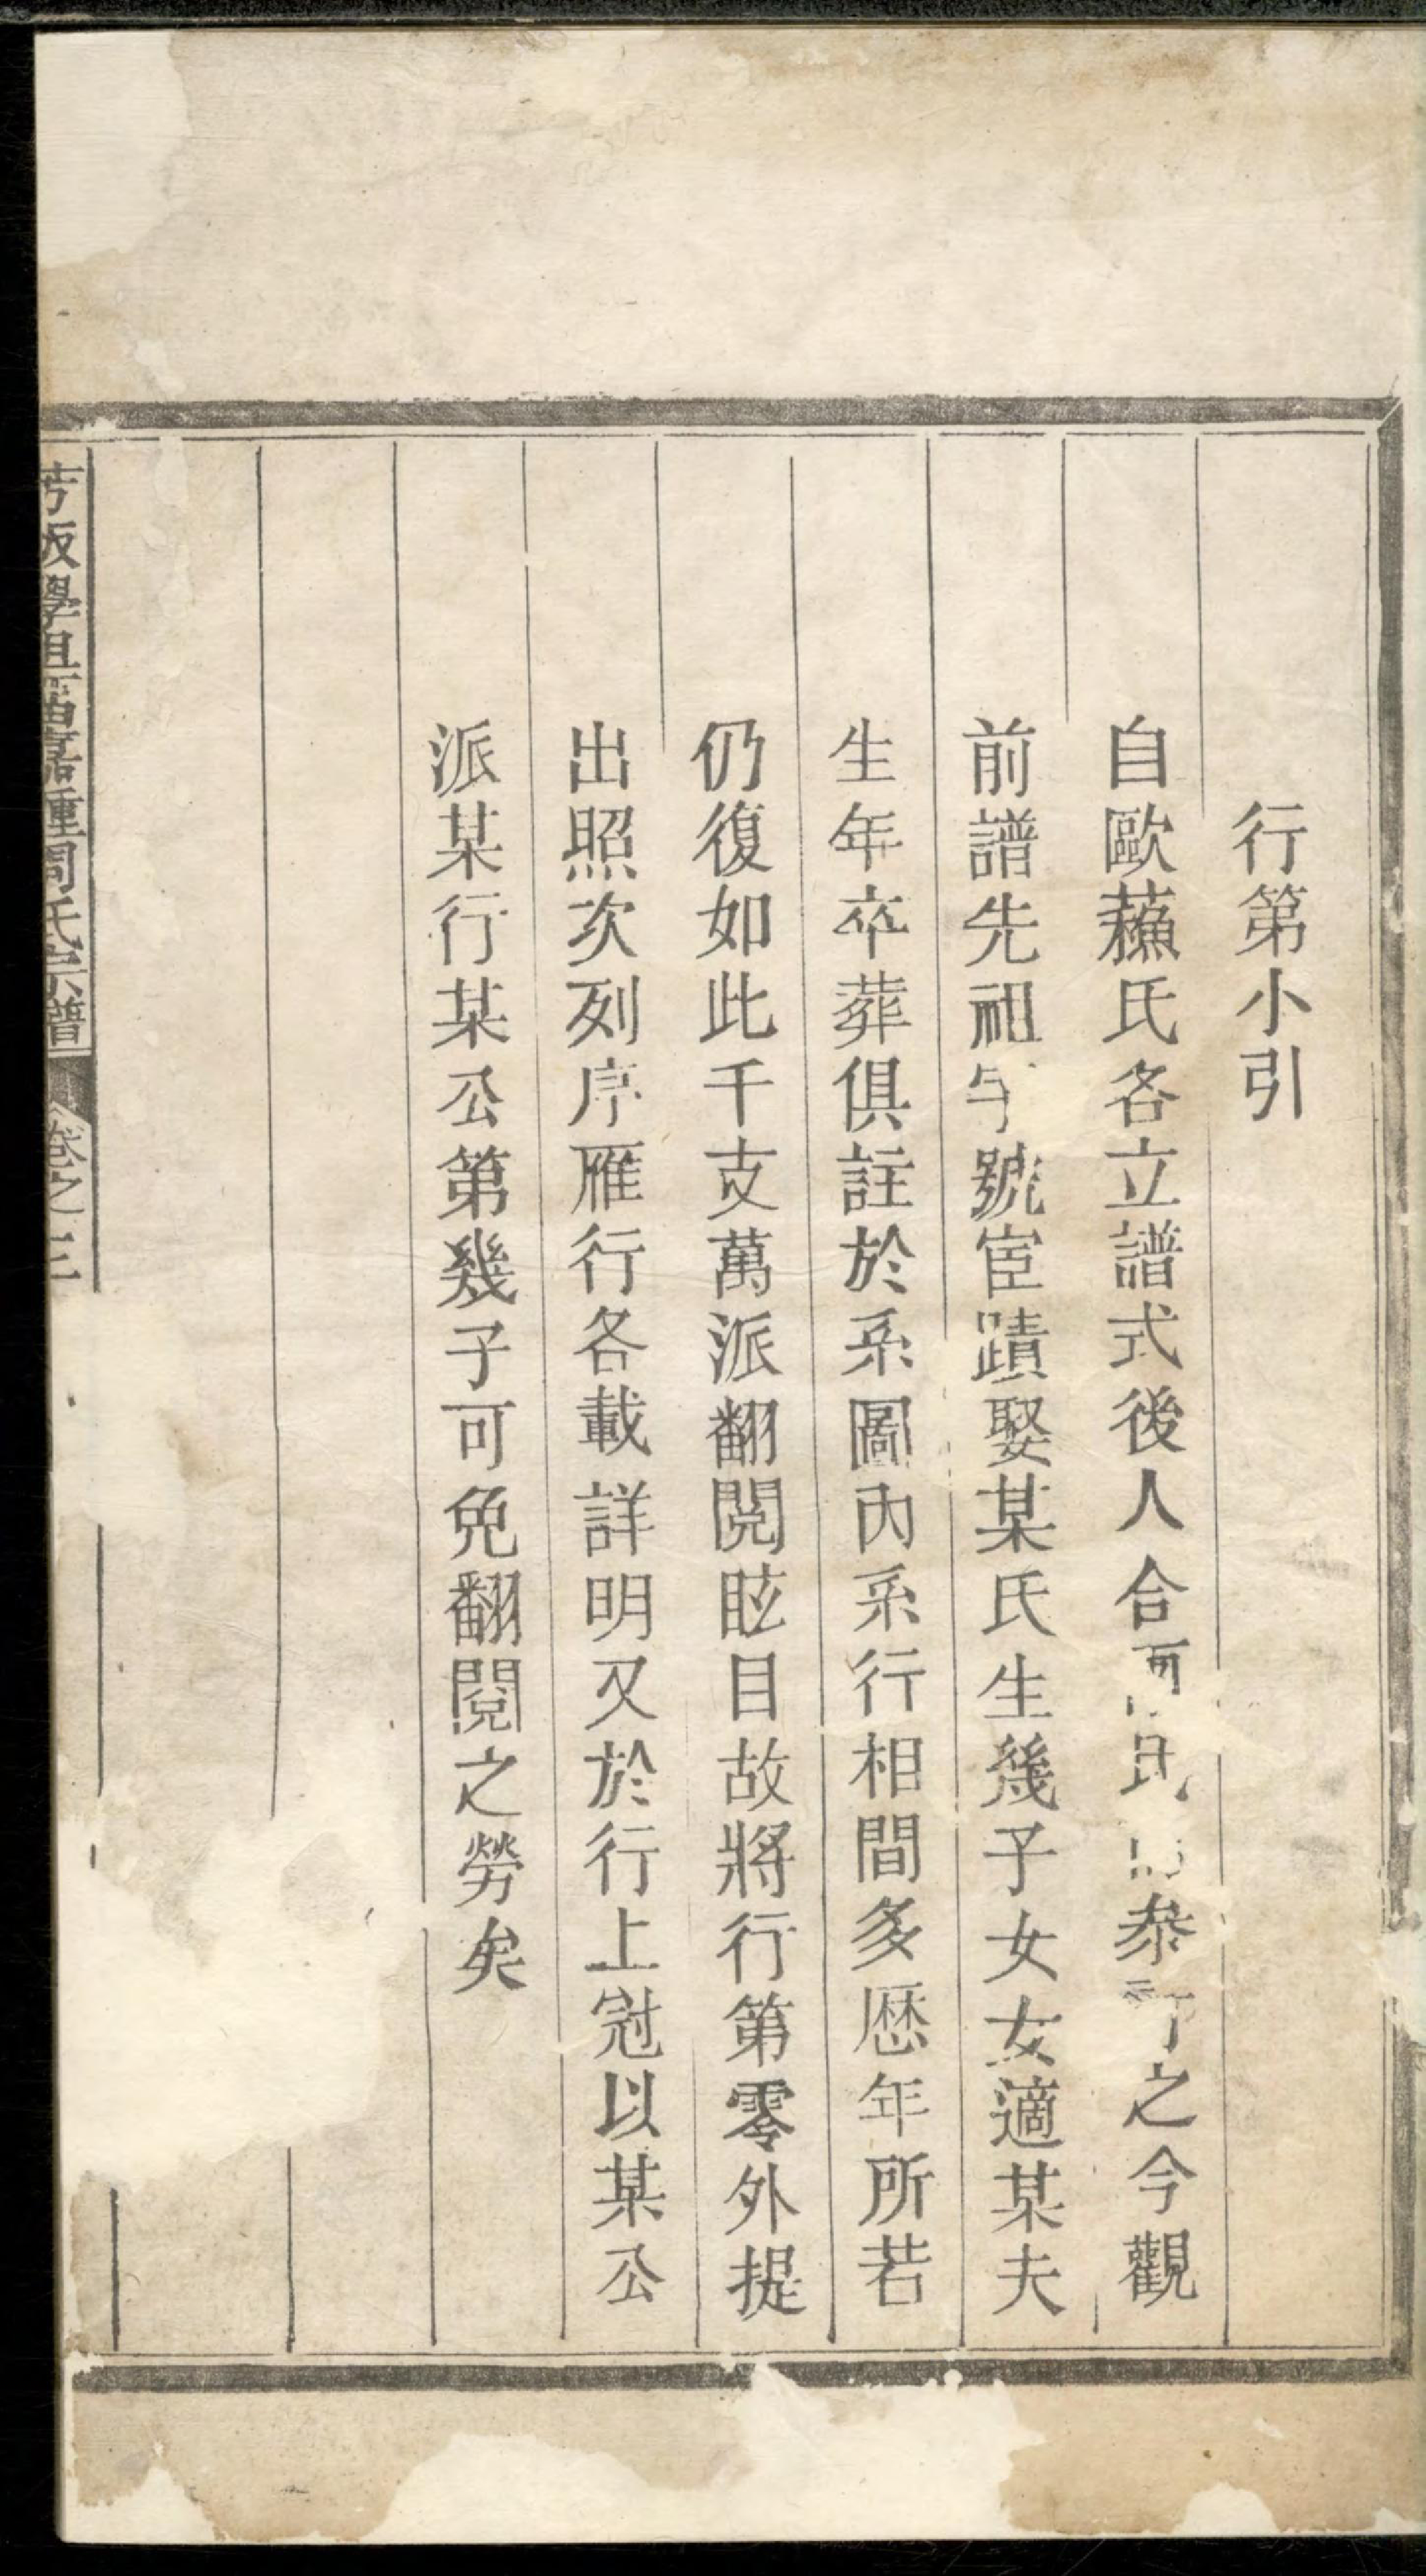 行第小引
自歐蘓氏各立譜式後人合兩氏叅訂之今觀
前譜先祖字號宦蹟娶某氏生幾子女女適某夫
生年卒葬俱註於系圖內系行相間多歷年所若
仍復如此千支萬派翻閱眩目故將行第零外提
出照次列序雁行各載詳明又於行上冠以某公
派某行某公第幾子可免翻閱之勞矣
周氏宗譜
卷之三